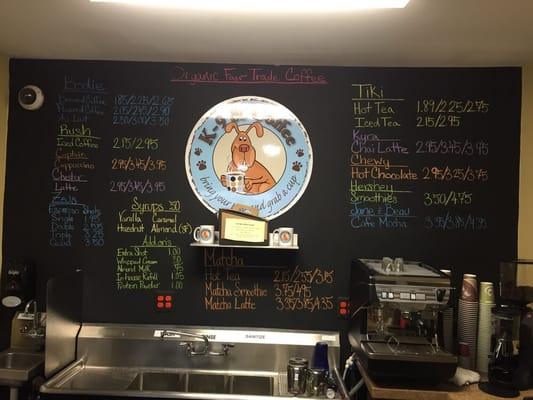 Organic Fair Trade Coffee
Bodie
Brewed Coffee 1.85/2.25/2.65
Flavored Coffee 2.05/2.45/2.90
Au Lait 2.50/3.00/3.50
Rush
Iced Coffee 2.15/2.95
Captain
Cappuccino 2.95/3.45/3.95
Chester
Latte 2.95/3.45/3.95
Espresso Shots
Single 1.95
Double
Triple
Quad 3.50
Syrups .50
Vanilla Caramel
Hazelnut Almond (SF)
Add-ons
Extra Shot 1.00
Whipped Cream .50
Almond Milk
In-house Refill
Protein Powder
K-9 Coffee
bring your and grab a cup
Matcha
Hot Tea 2.15/2.55/3.15
Matcha Smoothie 3.75/4.95
Matcha Latte 3.35/3.85/4.35
Tiki
Hot Tea 1.89/2.25/2.75
Iced Tea 2.15/2.95
Kyra
Chai Latte 2.95/3.45/3.95
Chewy
Hot Chocolate 2.95/3.25/3.75
Hershey
Smoothies 3.50/4.75
Jane & Beau
Caffe Mocha 3.35/3.85/4.35
RINSE
SANITIZE